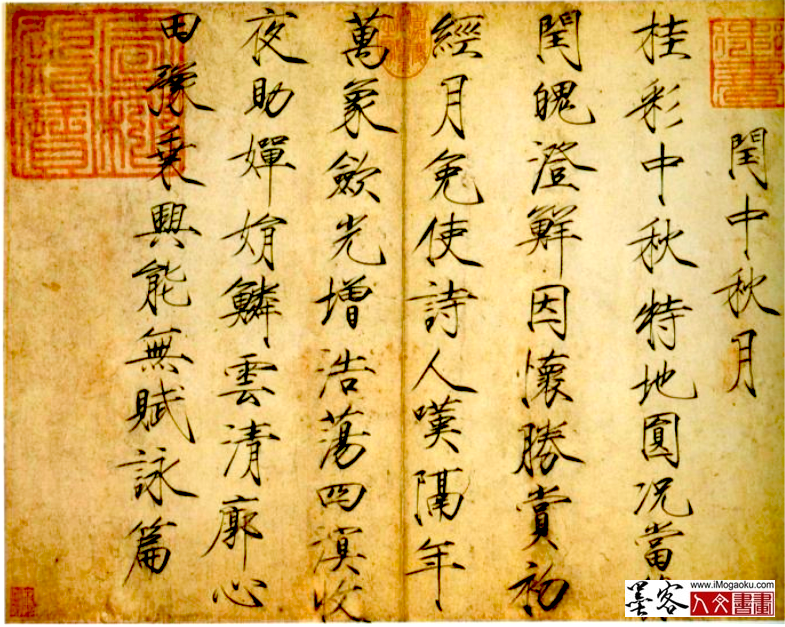 御書
閏中秋月
桂彩中秋特地圓況當
閏魄澄鮮因懷勝賞初
經月免使詩人嘆隔年
萬象歛光增浩蕩四溟收
夜助嬋娟鱗雲清廓心
田豫乘興能無賦詠篇
墨客
www.iMogaoku.com
人文書畫